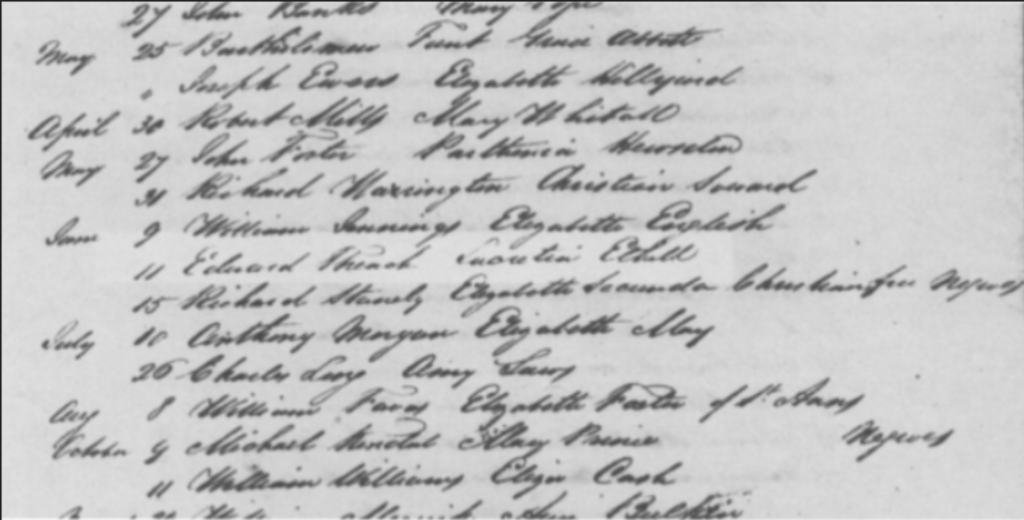 27 John Banks Mary Pope
May 25 Bartholomew Grace Abbott
" Joseph Evans Elizabeth
April 30 Robert Mills Mary Whitall
May 27 John Foster Parthenia
31 Richard Warrington Christian Soward
June 9 William Jennings Elizabeth English
11 Edward French Lucretia Ethell
15 Richard Stanely Elizabeth Secunda Christian free Negroes
July 10 Anthony Morgan Elizabeth May
26 Charles Long Amy Laws
Aug 8 William Elizabeth Foster of St. Anns
October 9 Michael Mary Negroes
11 William Williams Eliza Cash
Ann